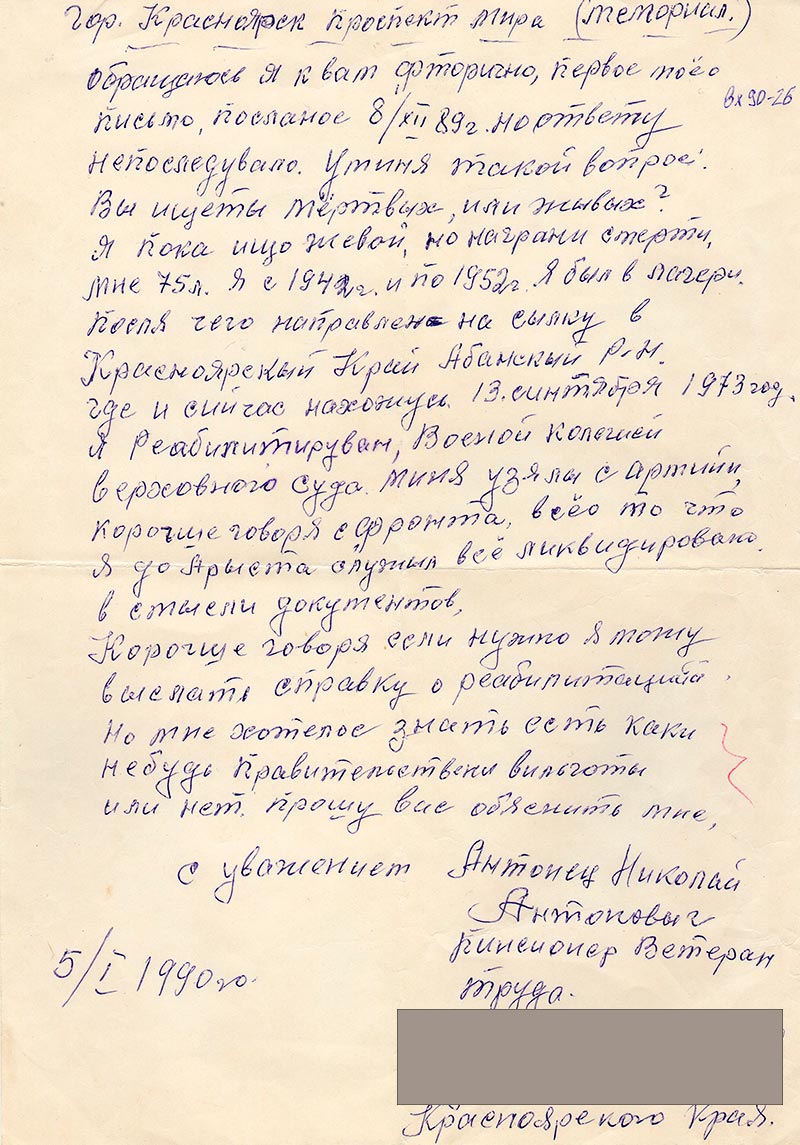 гор. Красноярск проспект Мира (Мемориал.)
Обращаюсь я к вам фторично, первое моёо
Вх 90-26
письмо, посланое 8/XII 89г. но ответу
непоследувало. У миня такой вопрос.
Вы ищеты мёртвых, или жывых?
Я пока ищо жевой, но награни смерти,
мне 75л. Я с 1942г. и по 1952г. я был в лагери.
посля чего направлен на сылку в
Красноярскый Край Абанскый р-н.
где и сийчас нахожусь. 13. синтября 1973 год.
я Реабилитируван, Военой Колегией
верховного суда. Миня узялы с Армии,
корочше говоря с фронта, всёо то что
я до Арыста служил всё ликвидировано.
в смысли документов,
Корочше говоря если нужно я можу
выслать справку о реабилитацийи.
Но мне хотелос знать есть каки
небудь правительствени вильготы
или нет. прошу вас обяснить мне,
с уважением Антонец Николай
Антоновыч
пинсионер Ветеран
труда.
5/I 1990го.
Красноярского Края.